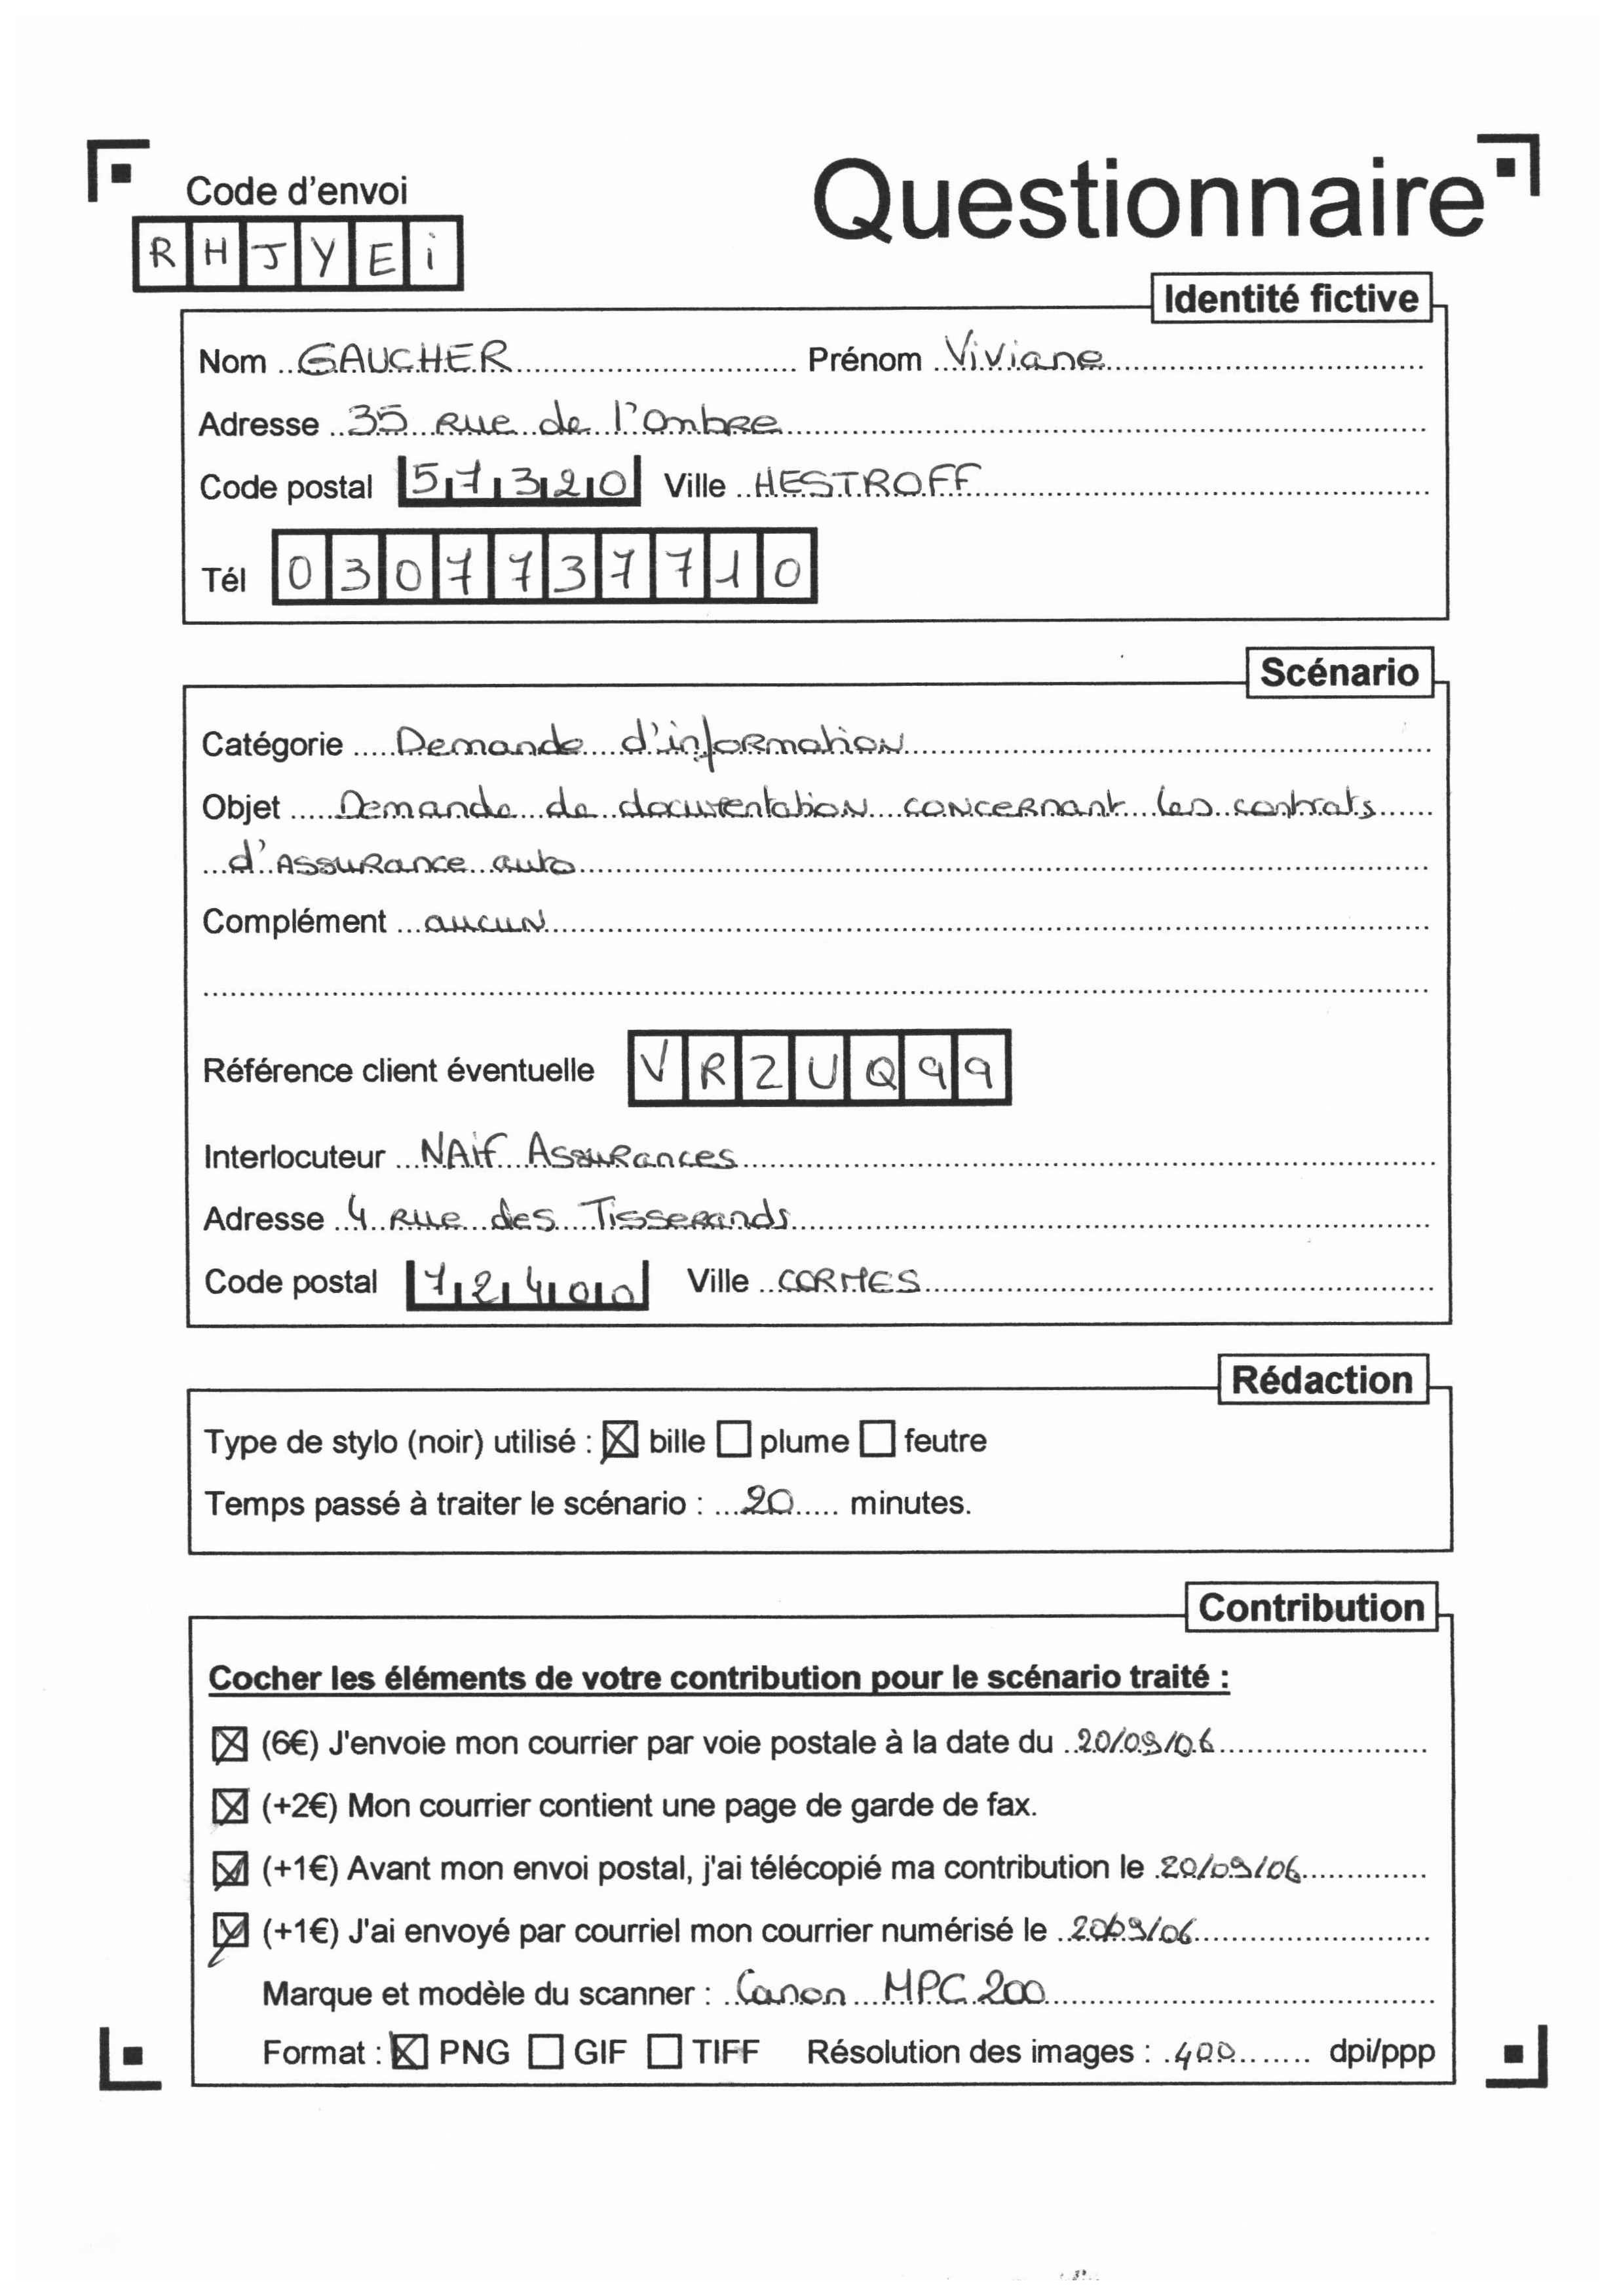 Code d'envoi
Questionnaire
R H J Y E i
Identité fictive
Nom GAUCHER Prénom Viviane
Adresse 35 Rue de l'Ombre
Code postal 57320 Ville HESTROFF
Tél 0307737710
Scénario
Catégorie Demande d'information
Objet Demande de documentation concernant les contrats
d'Assurance auto
Complément aucun
Référence client éventuelle VRZUQ99
Interlocuteur NAIF Assurances
Adresse 4 Rue des Tisserands
Code postal 72400 Ville CORMES
Rédaction
Type de stylo (noir) utilisé : ☒ bille ☐ plume ☐ feutre
Temps passé à traiter le scénario : 20 minutes.
Contribution
Cocher les éléments de votre contribution pour le scénario traité :
☒ (6€) J'envoie mon courrier par voie postale à la date du 20/09/06
☒ (+2€) Mon courrier contient une page de garde de fax.
☒ (+1€) Avant mon envoi postal, j'ai télécopié ma contribution le 20/09/06
☒ (+1€) J'ai envoyé par courriel mon courrier numérisé le 20/09/06
Marque et modèle du scanner : Canon MPC 200
Format : ☒ PNG ☐ GIF ☐ TIFF Résolution des images : 400 dpi/ppp